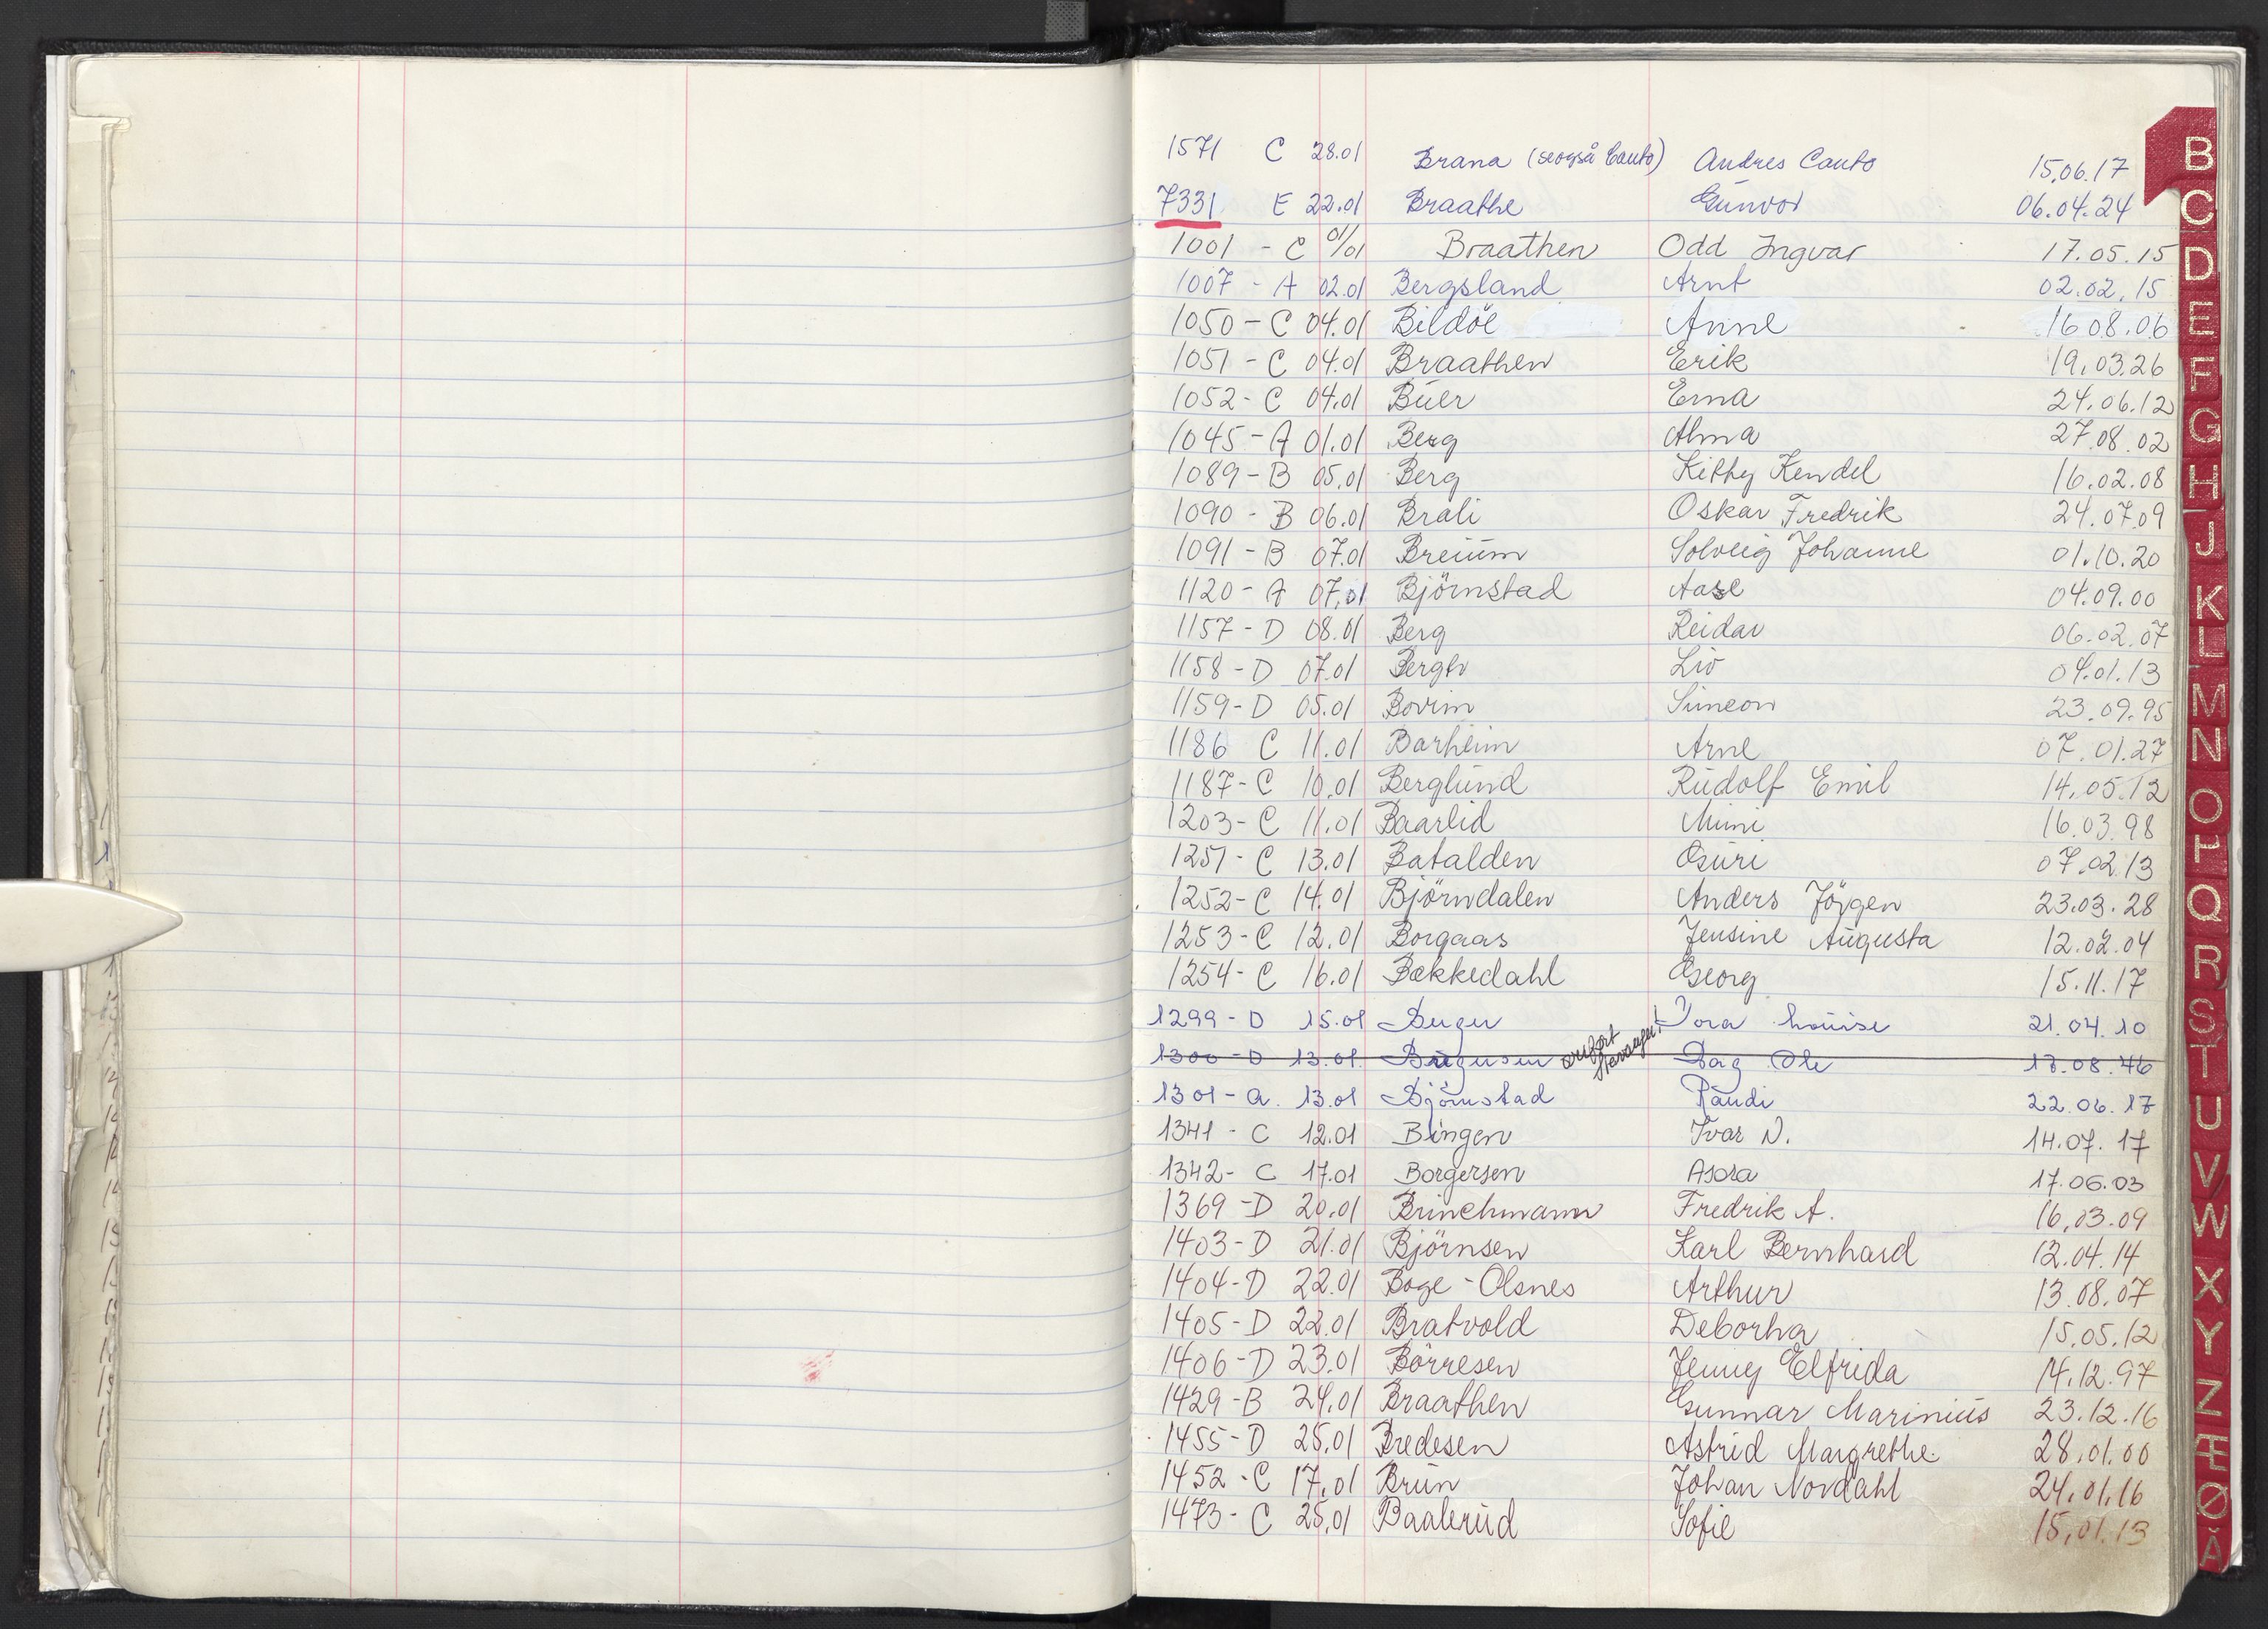 1571 C 28.01 Brana (se også Cauto) Andres Cauto 15.06.17
7331 E 22.01 Braathe Gunvor 06.04.24
1001 - C 01/01 Braathen Odd Ingvar 17.05.15
1007 - A 02.01 Bergsland Arnt 02.02.15
1050 - C 04.01 Bildöe Anne 16 08.06
1051 - C 04.01 Braathen Erik 19.03.26
1052 - C 04.01 Buer Erna 24.06.12
1045 - A 01.01 Berg Alma 27.08.02
1089 - B 05.01 Berg Kitty Kendel 16.02.08
1090 - B 06.01 Bråli Oskar Fredrik 24.07.09
1091 - B 07.01 Breium Solveig Johanne 01.10.20
1120 - A 07.01 Björnstad Aase 04.09.00
1157 - D 08.01 Berg Reidar 06.02.07
1158 - D 07.01 Bergh Liv 04.01.13
1159 - D 05.01 Bovim Simeon 23.09.95
1186 C 11.01 Barheim Arne 07.01.27
1187 - C 10.01 Berglund Rudolf Emil 14.05.12
1203 - C 11.01 Baarlid Mimi 16.03.98
1251 - C 13.01 Batalden Guri 07.02.13
1252 - C 14.01 Björndalen Anders Jörgen 23.03.28
1253 - C 12.01 Borgaas Jensine Augusta 12.02.04
1254 - C 16.01 Bekkedahl Georg 15.11.17
1299 - D 15.01 Berger Tora Louise 21.04.10
1300 - D 13.01 Dag Ole 17.08.46
1301 - A. 13.01 Björnstad Randi 22.06.17
1341 - C 12.01 Bingen Ivar N. 14.07.17
1342 - C 17.01 Borgersen Asora 17.06.03
1369 - D 20.01 Brinchmann Fredrik A. 16.03.09
1403 - D 21.01 Björnsen Karl Bernhard 12.04.14
1404 - D 22.01 Boge - Olsnes Arthur 13.08.07
1405 - D 22.01 Bratvold Deborha 15.05.12
1406 - D 23.01 Börresen Jenny Elfrida 14.12.97
1429 - B 24.01 Braathen Gunnar Marinius 23.12.16
1455 - D 25.01 Bredesen Astrid Margrethe 28.01.00
1452 - C 17.01 Brun Johan Nordahl 24.01.16
1473 - C 25.01 Baalerud Sofie 15.01.13
B
C
D
E
F
G
H
J
K
L
M
N
O
P
Q
R
S
T
U
V
W
X
Y
Z
Æ
Ø
Å